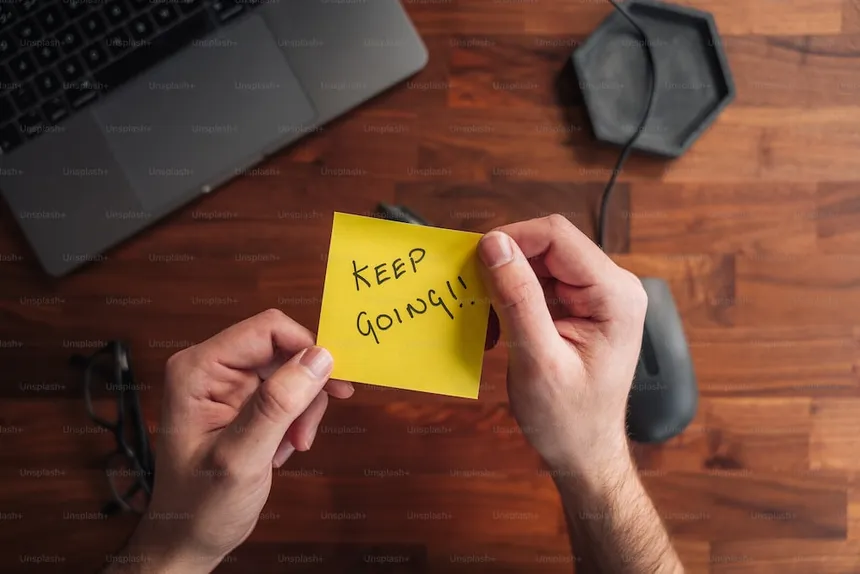 KEEP
GOING!!
Unsplash+